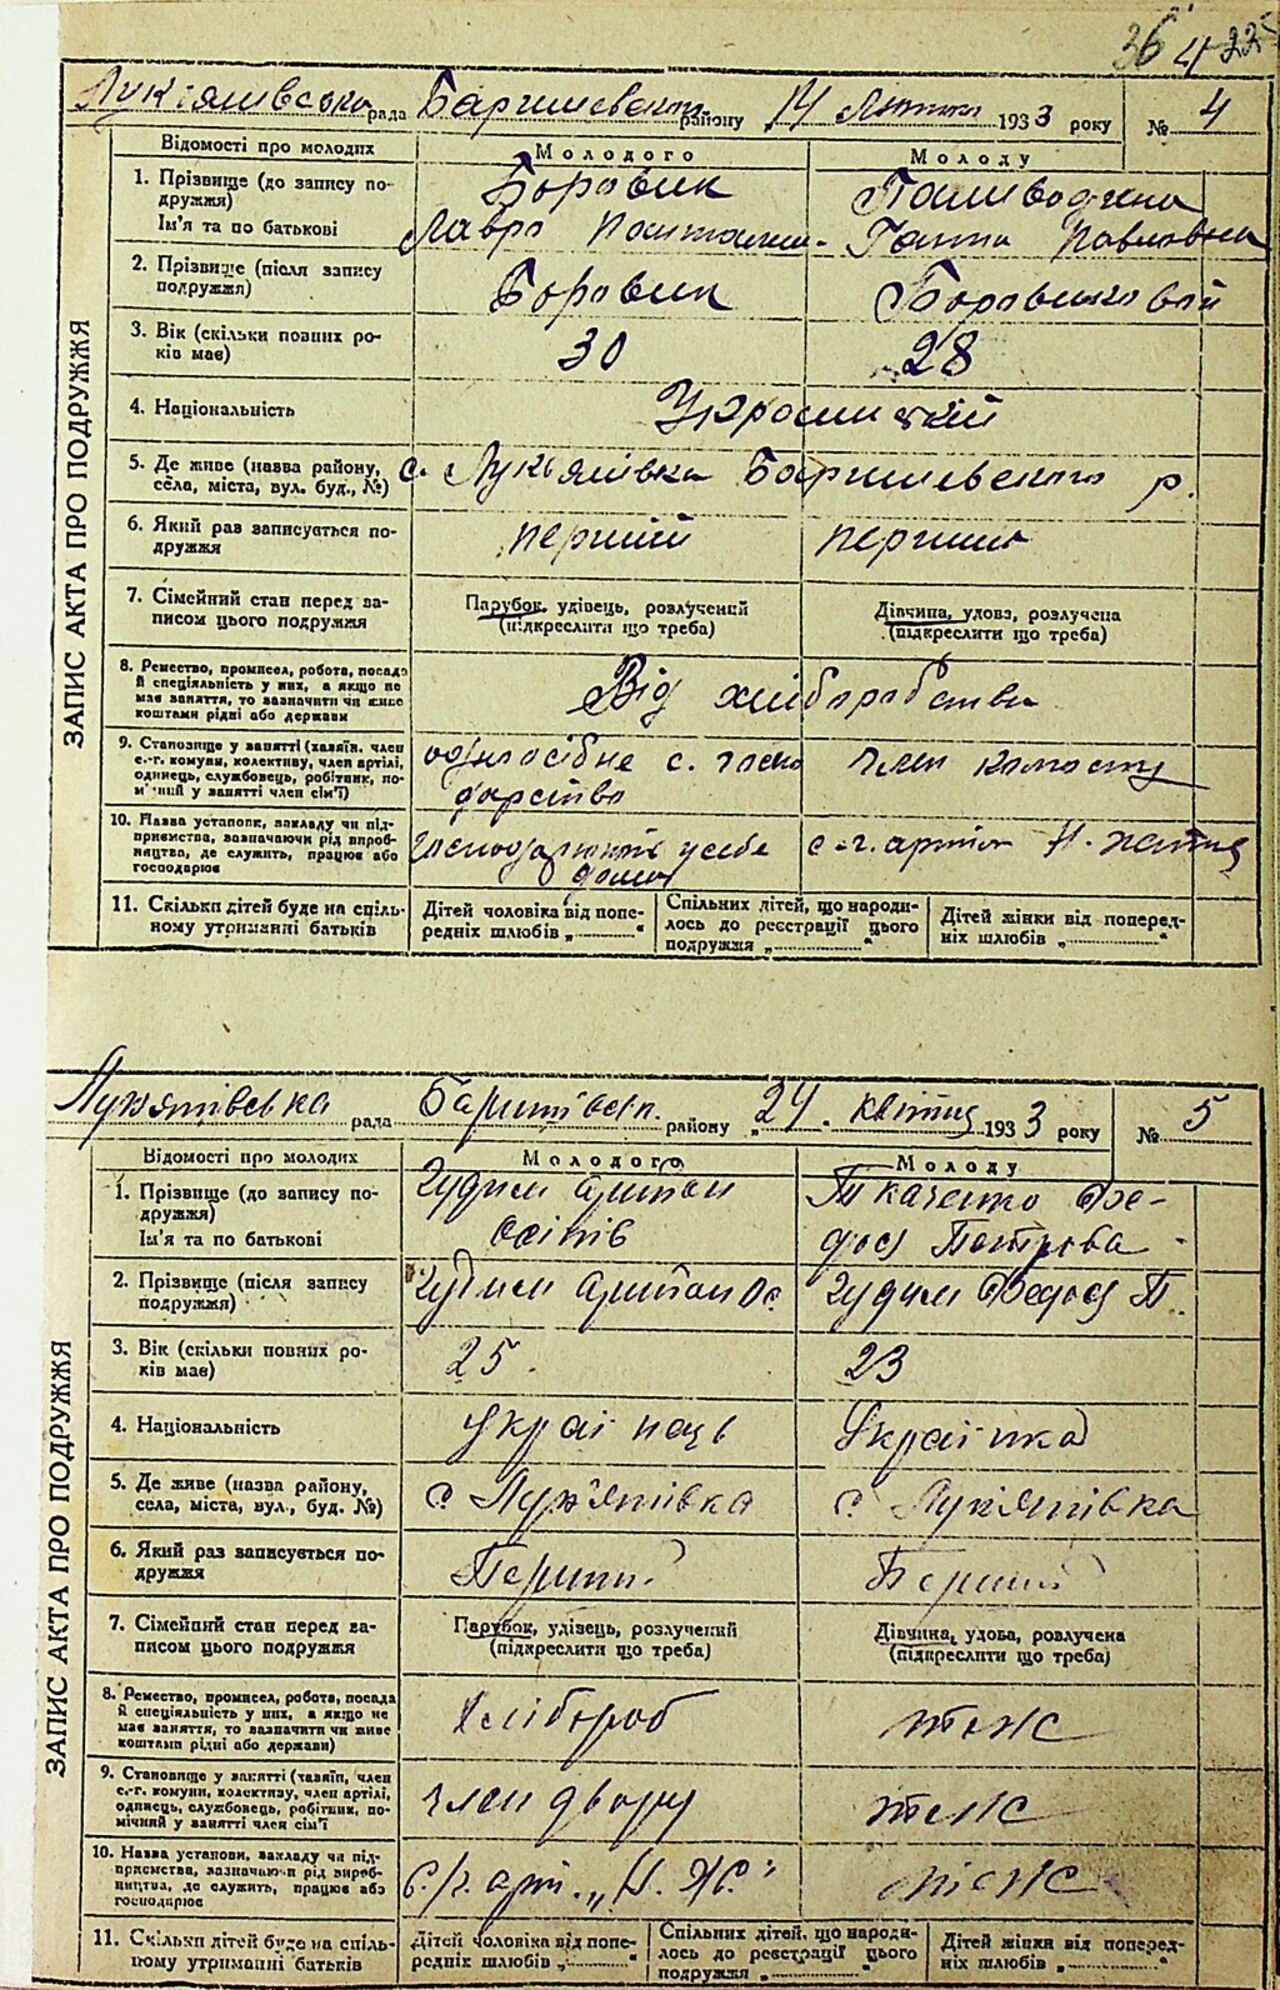 36 4 225
Лукіянівська рада Баришевського району 14 Лютого 1933 року № 4
ЗАПИС АКТА ПРО ПОДРУЖЖЯ
Відомості про молодих
Молодого
Молоду
1. Прізвище (до запису по-
дружжя)
Ім'я та по батькові
Боровик
Лавро
Паливодина
Ганна Павловна
2. Прізвище (після запису
подружжя)
Боровик
Боровиковой
3. Вік (скільки повних ро-
ків має)
30
28
4. Національність
Україницкій
5. Де живе (назва району,
села, міста, вул. буд., №)
с. Лукьянівка Баришевского р.
6. Який раз записується по-
дружжя
перший
перший
7. Сімейний стан перед за-
писом цього подружжя
Парубок, удівець, розлучений
(підкреслити що треба)
Дівчина, удова, розлучена
(підкреслити що треба)
8. Ремество, промисел, робота, посада
й спеціяльність у них, а якщо не
має заняття, то зазначити чи живе
коштами рідні або держави
Від хліборобства
9. Становище у занятті (хазяїн, член
с.-г. комуни, колективу, член артілі,
одинець, службовець, робітник, по-
мічний у занятті член сім'ї)
одноосібне с. госпо
дарство
член колгоспу
10. Назва установи, закладу чи під-
приємства, зазначаючи рід вироб-
ництва, де служить, працює або
господарює
у себе
дома
с-г. артіл Н. життя
11. Скільки дітей буде на спіль-
ному утриманні батьків
Дітей чоловіка від попе-
редніх шлюбів „ “
Спільних дітей, що народи-
лось до реєстрації цього
подружжя „ “
Дітей жінки від поперед-
ніх шлюбів „ “
Лук'янівська рада Баришівськ. району „24. квітня 1933 року № 5
ЗАПИС АКТА ПРО ПОДРУЖЖЯ
Відомості про молодих
Молодого
Молоду
1. Прізвище (до запису по-
дружжя)
Ім'я та по батькові
Чудим
Осіпів
Ткаченко Фе-
дося Петрова
2. Прізвище (після запису
подружжя)
Чудим Ос.
Чудим Федося П.
3. Вік (скільки повних ро-
ків має)
25
23
4. Національність
Українець
Українка
5. Де живе (назва району,
села, міста, вул., буд. №)
с. Лук'янівка
с. Лук'янівка
6. Який раз записується по-
дружжя
Перший
Перший
7. Сімейний стан перед за-
писом цього подружжя
Парубок, удівець, розлучений
(підкреслити що треба)
Дівчина, удова, розлучена
(підкреслити що треба)
8. Ремество, промисел, робота, посада
й спеціяльність у них, а якщо не
має заняття, то зазначити чи живе
коштами рідні або держави)
Хлібороб
теж
9. Становище у занятті (хазяїн, член
с.-г. комуни, колективу, член артілі,
одинець, службовець, робітник, по-
мічний у занятті член сім'ї
член двору
теж
10. Назва установи, закладу чи під-
приємства, зазначаючи рід вироб-
ництва, де служить, працює або
господарює
С./г. арт. „Н. Ж.“
теж
11. Скільки дітей буде на спіль-
ному утриманні батьків
Дітей чоловіка від попе-
редніх шлюбів „ “
Спільних дітей, що народи-
лось до реєстрації цього
подружжя „ “
Дітей жінки від поперед-
ніх шлюбів „ “